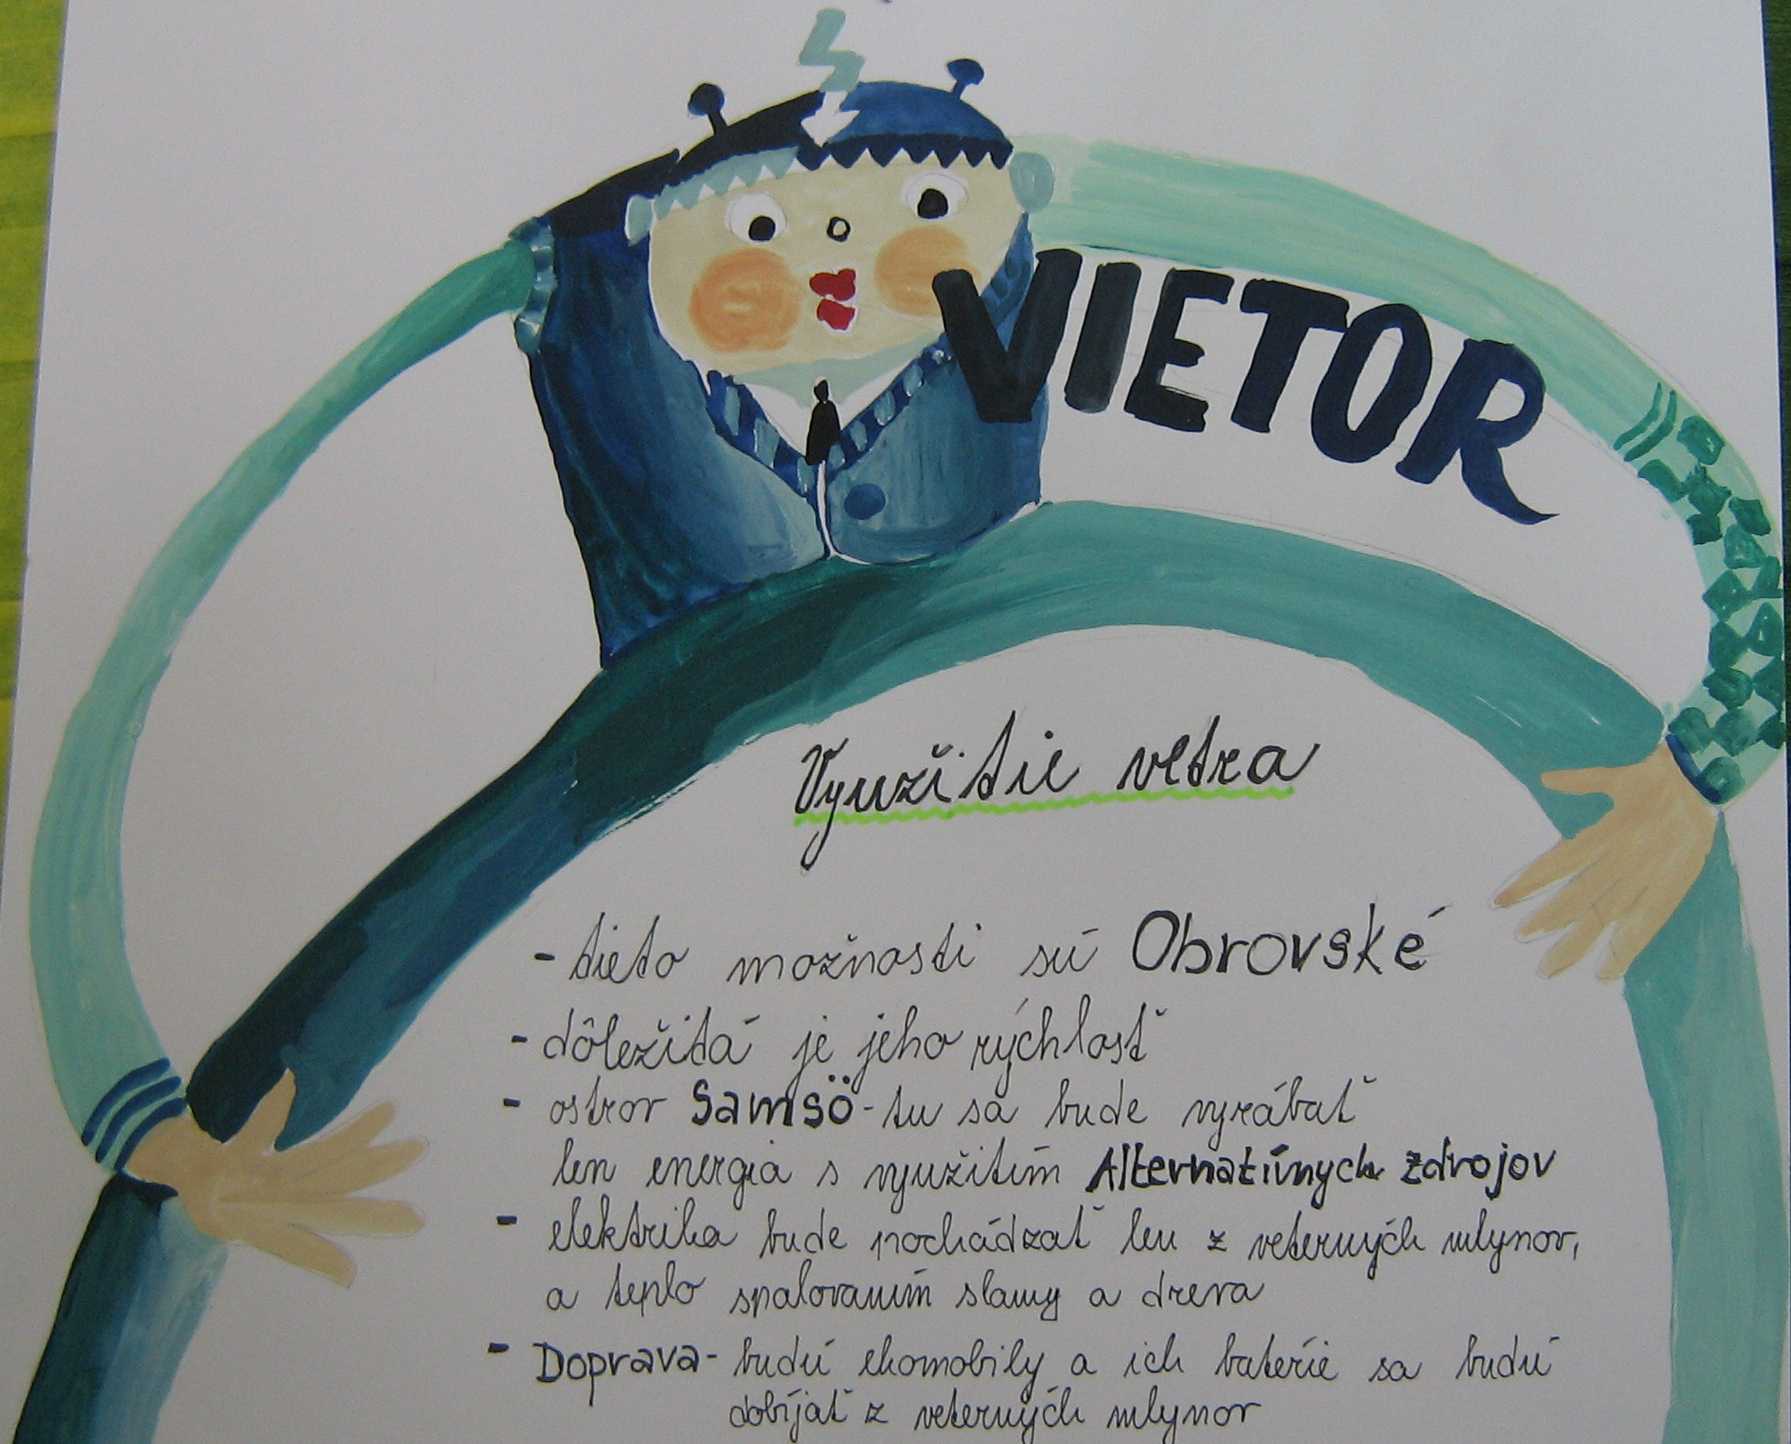 VIETOR
Využitie vetra
- tieto možnosti sú Obrovské
- dôležitá je jeho rýchlosť
- ostrov Samsö - tu sa bude vyrábať
len energia s využitím Alternatívnych zdrojov
- elektrika bude pochádzať len z veterných mlynov,
a teplo spalovaním slamy a dreva
- Doprava - budú ekomobily a ich batérie sa budú
dobíjať z veterných mlynov